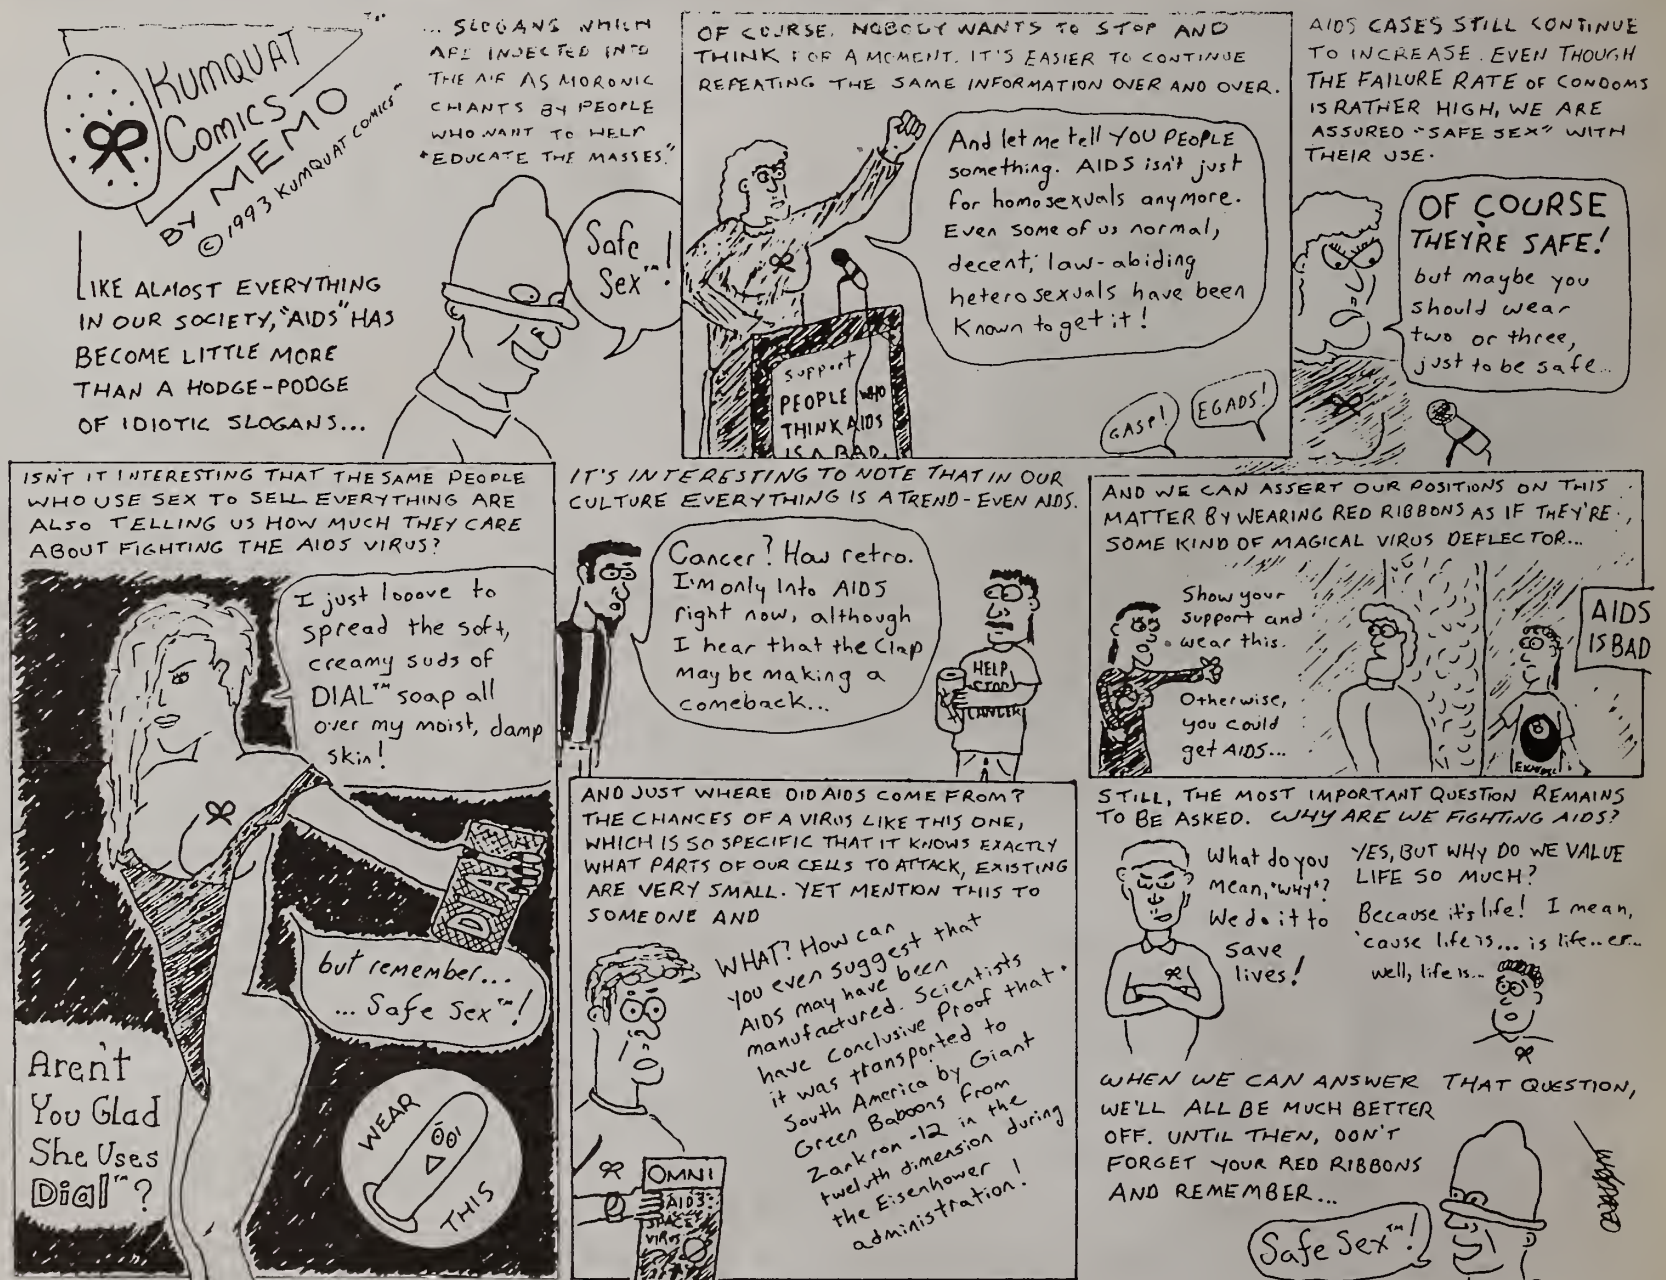 KUMQUAT
COMICS™
BY MEMO
© 1993 KUMQUAT COMICS™
LIKE ALMOST EVERYTHING
IN OUR SOCIETY, "AIDS" HAS
BECOME LITTLE MORE
THAN A HODGE-PODGE
OF IDIOTIC SLOGANS...
... SLOGANS WHICH
ARE INJECTED INTO
THE AIR AS MORONIC
CHANTS BY PEOPLE
WHO WANT TO HELP
"EDUCATE THE MASSES."
Safe
Sex™!
OF COURSE, NOBODY WANTS TO STOP AND
THINK FOR A MOMENT. IT'S EASIER TO CONTINUE
REPEATING THE SAME INFORMATION OVER AND OVER.
And let me tell YOU PEOPLE
something. AIDS isn't just
for homosexuals anymore.
Even some of us normal,
decent, law-abiding
heterosexuals have been
Known to get it!
Support
PEOPLE WHO
THINK AIDS
IS A BAD.
GASP!
EGADS!
AIDS CASES STILL CONTINUE
TO INCREASE. EVEN THOUGH
THE FAILURE RATE OF CONDOMS
IS RATHER HIGH, WE ARE
ASSURED "SAFE SEX" WITH
THEIR USE.
OF COURSE
THEY'RE SAFE!
but maybe you
should wear
two or three,
just to be safe...
ISN'T IT INTERESTING THAT THE SAME PEOPLE
WHO USE SEX TO SELL EVERYTHING ARE
ALSO TELLING US HOW MUCH THEY CARE
ABOUT FIGHTING THE AIDS VIRUS?
I just looove to
spread the soft,
creamy suds of
DIAL™ soap all
over my moist, damp
skin!
DIAL
but remember....
... Safe Sex™!
Aren't
You Glad
She Uses
Dial™?
WEAR
THIS
IT'S INTERESTING TO NOTE THAT IN OUR
CULTURE EVERYTHING IS A TREND - EVEN AIDS.
Cancer? How retro.
I'm only Into AIDS
right now, although
I hear that the Clap
may be making a
comeback...
HELP
STOP
CANCER
AND WE CAN ASSERT OUR POSITIONS ON THIS
MATTER BY WEARING RED RIBBONS AS IF THEY'RE
SOME KIND OF MAGICAL VIRUS DEFLECTOR...
Show your
support and
wear this.
Otherwise,
you could
get AIDS...
AIDS
IS BAD
8
AND JUST WHERE DID AIDS COME FROM?
THE CHANCES OF A VIRUS LIKE THIS ONE,
WHICH IS SO SPECIFIC THAT IT KNOWS EXACTLY
WHAT PARTS OF OUR CELLS TO ATTACK, EXISTING
ARE VERY SMALL. YET MENTION THIS TO
SOMEONE AND
WHAT? How can
you even suggest that
AIDS may have been
manufactured. Scientists
have Conclusive Proof that
it was transported to
South America by Giant
Green Baboons from
Zankron-12 in the
twelvth dimension during
the Eisenhower
administration!
OMNI
AIDS:
SPACE
VIRUS
STILL, THE MOST IMPORTANT QUESTION REMAINS
TO BE ASKED. WHY ARE WE FIGHTING AIDS?
What do you
mean, "WHY"?
We do it to
save
lives!
YES, BUT WHY DO WE VALUE
LIFE SO MUCH?
Because it's life! I mean,
'cause life is... is life.. er...
well, life is...
WHEN WE CAN ANSWER THAT QUESTION,
WE'LL ALL BE MUCH BETTER
OFF. UNTIL THEN, DON'T
FORGET YOUR RED RIBBONS
AND REMEMBER...
Safe Sex™!